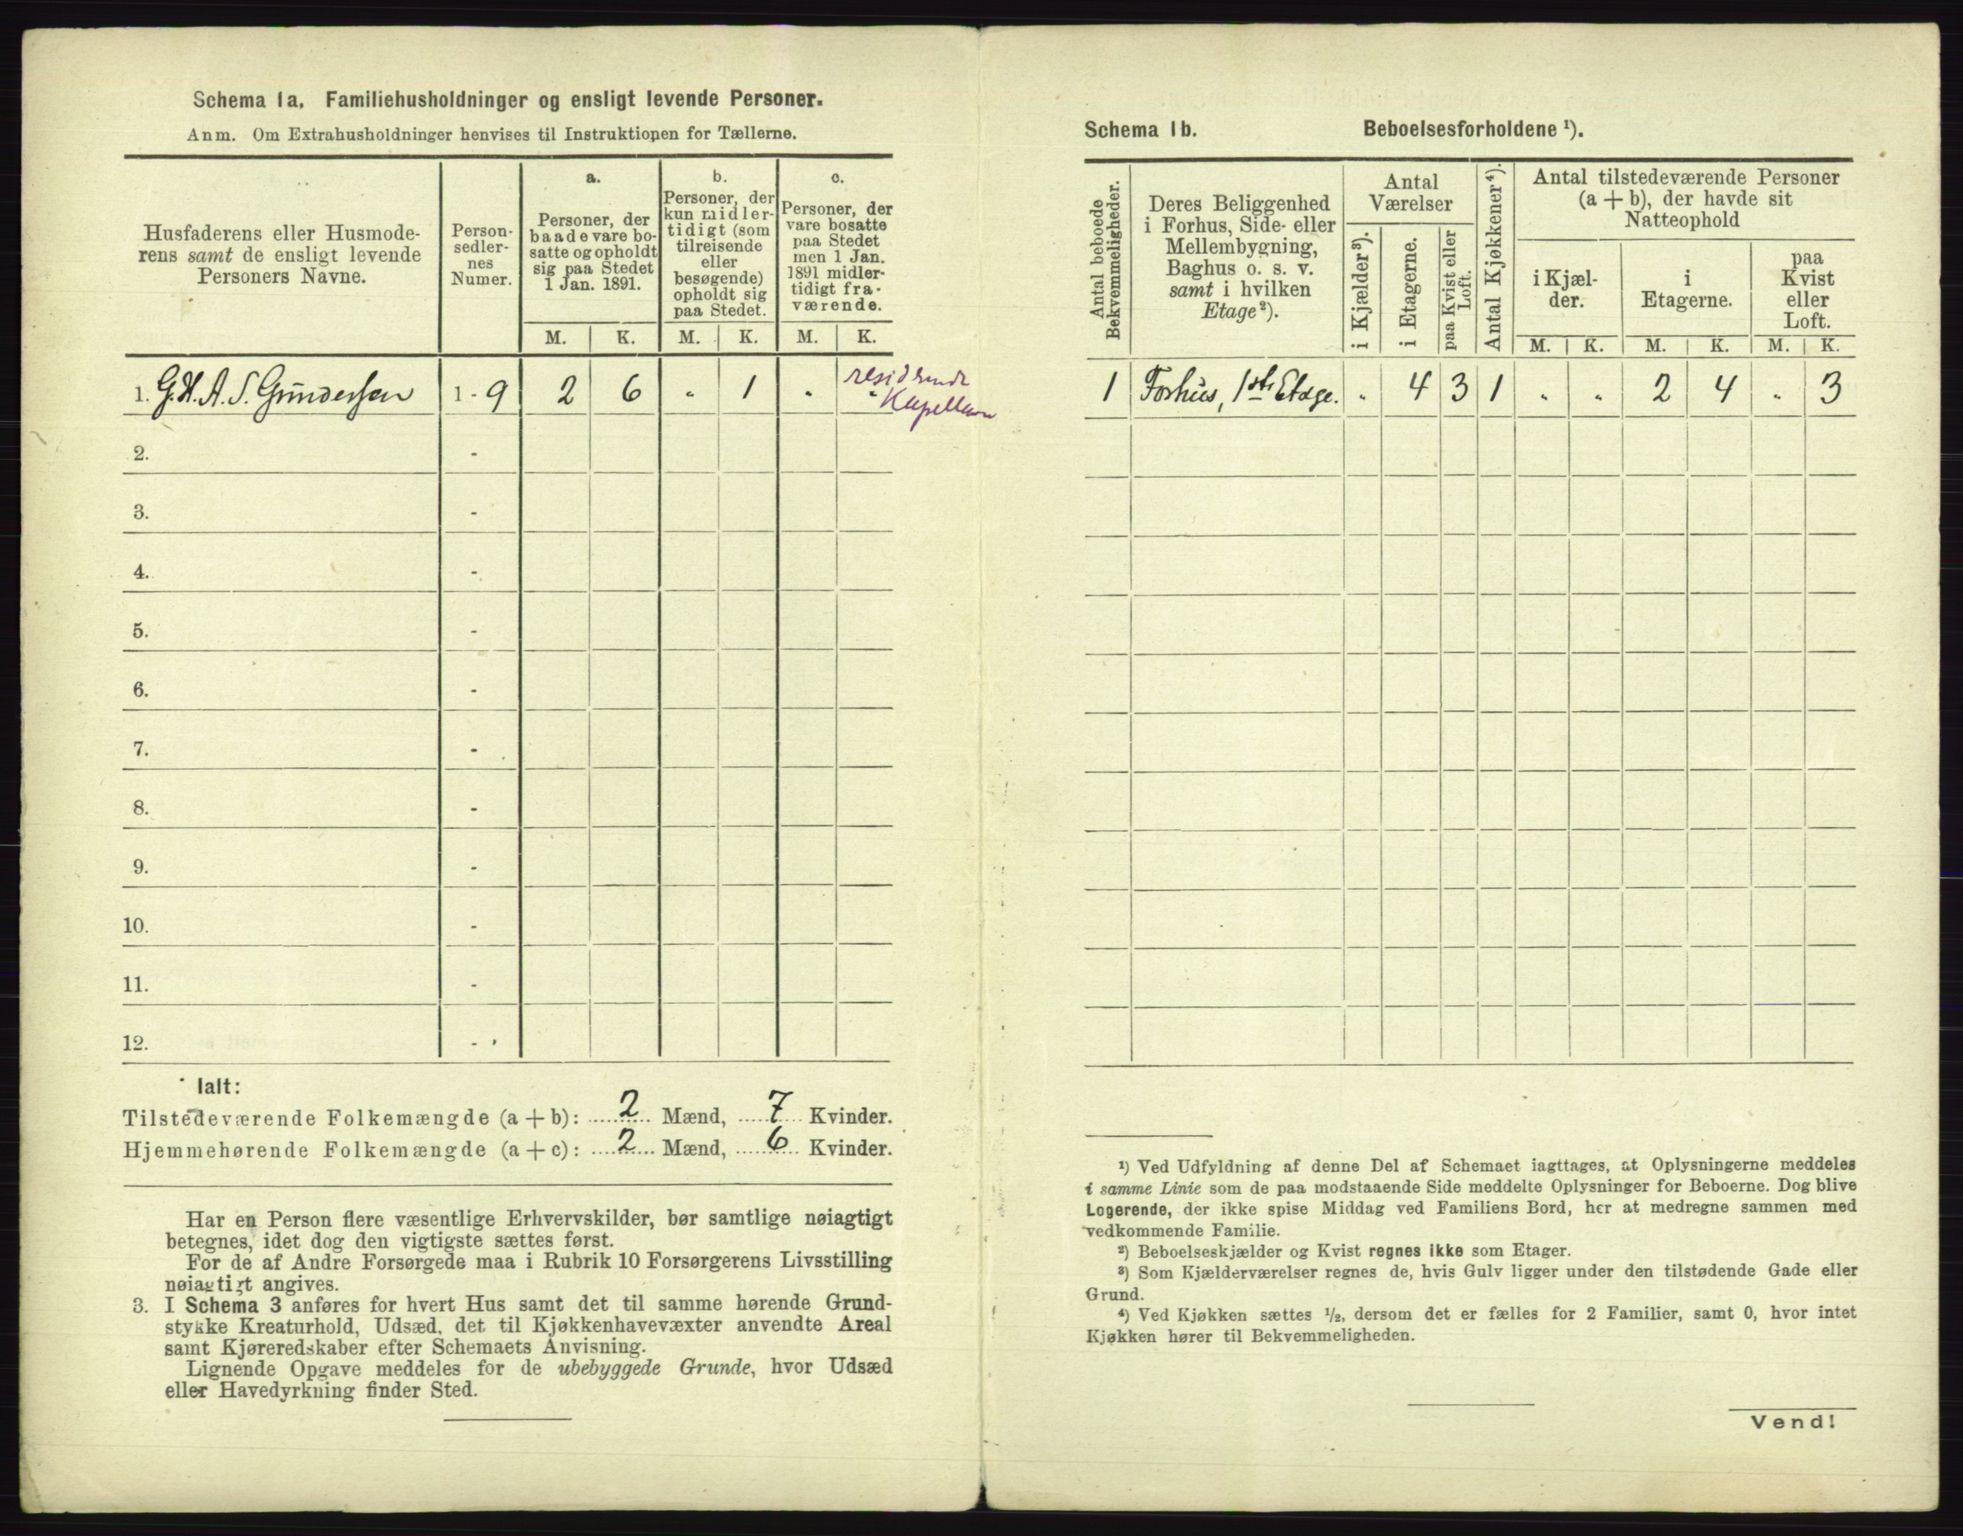 Schema 1a. Familiehusholdninger og ensligt levende Personer.
Anm. Om Extrahusholdninger henvises til Instruktionen for Tællerne.
Husfaderens eller Husmode-
rens samt de ensligt levende
Personers Navne.
Person-
sedler-
nes
Numer.
a.
Personer, der
baade vare bo-
satte og opholdt
sig paa Stedet
1 Jan. 1891.
b.
Personer, der
kun midler-
tidigt (som
tilreisende
eller
besøgende)
opholdt sig
paa Stedet.
c.
Personer, der
vare bosatte
paa Stedet
men 1 Jan.
1891 midler-
tidigt fra-
værende.
M. K. M. K. M. K.
1. G. H. A. S. Gundersen 1 - 9 2 6 " 1 " "
residerende
Kapellan
2. -
3. -
4. -
5. -
6. -
7. -
8. -
9. -
10. -
11. -
12. -
Ialt:
Tilstedeværende Folkemængde (a + b): 2 Mænd, 7 Kvinder.
Hjemmehørende Folkemængde (a + c): 2 Mænd, 6 Kvinder.
Har en Person flere væsentlige Erhvervskilder, bør samtlige nøiagtigt
betegnes, idet dog den vigtigste sættes først.
For de af Andre Forsørgede maa i Rubrik 10 Forsørgerens Livsstilling
nøiagtigt angives.
3. I Schema 3 anføres for hvert Hus samt det til samme hørende Grund-
stykke Kreaturhold, Udsæd, det til Kjøkkenhavevæxter anvendte Areal
samt Kjøreredskaber efter Schemaets Anvisning.
Lignende Opgave meddeles for de ubebyggede Grunde, hvor Udsæd
eller Havedyrkning finder Sted.
Schema 1b. Beboelsesforholdene ¹).
Antal beboede
Bekvemmeligheder.
Deres Beliggenhed
i Forhus, Side- eller
Mellembygning,
Baghus o. s. v.
samt i hvilken
Etage²).
Antal
Værelser
i Kjælder³).
i Etagerne.
paa Kvist eller
Loft.
Antal Kjøkkener⁴).
Antal tilstedeværende Personer
(a + b), der havde sit
Natteophold
i Kjæl-
der.
i
Etagerne.
paa
Kvist
eller
Loft.
M. K. M. K. M. K.
1 Forhus, 1ste Etage. " 4 3 1 " " 2 4 " 3
¹) Ved Udfyldning af denne Del af Schemaet iagttages, at Oplysningerne meddeles
i samme Linie som de paa modstaaende Side meddelte Oplysninger for Beboerne. Dog blive
Logerende, der ikke spise Middag ved Familiens Bord, her at medregne sammen med
vedkommende Familie.
²) Beboelseskjælder og Kvist regnes ikke som Etager.
³) Som Kjælderværelser regnes de, hvis Gulv ligger under den tilstødende Gade eller
Grund.
⁴) Ved Kjøkken sættes ½, dersom det er fælles for 2 Familier, samt 0, hvor intet
Kjøkken hører til Bekvemmeligheden.
Vend!